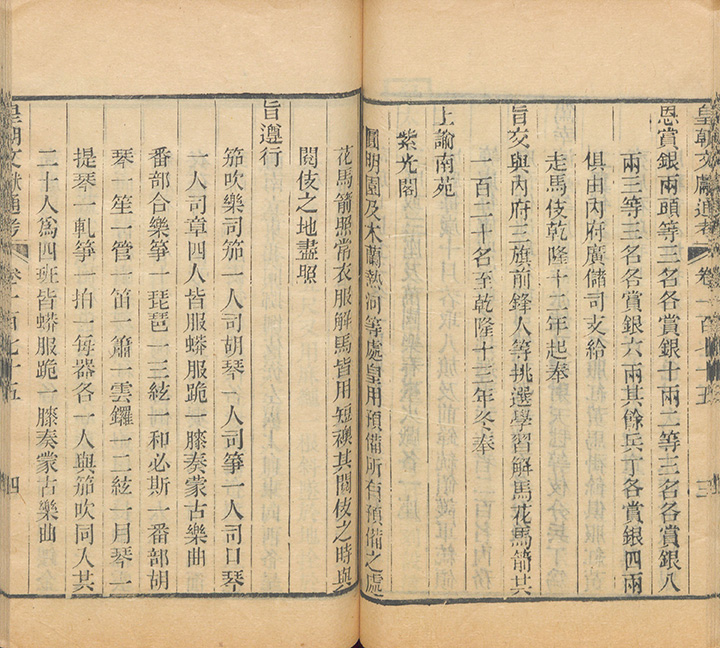 皇朝文獻通考 卷一百七十五 三
恩賞銀兩頭等三名各賞銀十兩二等三名各賞銀八
兩三等三名各賞銀六兩其餘兵丁各賞銀四兩
俱由內府廣儲司支給
走馬伎乾隆十二年起奉
旨交與內府三旗前鋒人等挑選學習解馬花馬箭共
一百二十名至乾隆十三年冬奉
上諭南苑
紫光閣
圓明園及木蘭熱河等處皇用預備所有預備之處
花馬箭照常衣服解馬皆用短襖其閱伎之時與
閱伎之地盡照
旨遵行
笳吹樂司笳一人司胡琴一人司箏一人司口琴
一人司章四人皆服蟒服跪一膝奏蒙古樂曲
番部合樂箏一琵琶一三絃一和必斯一番部胡
琴一笙一管一笛一簫一雲鑼一二絃一月琴一
提琴一軋箏一拍一每器各一人與笳吹同入其
二十人爲四班皆蟒服跪一膝奏蒙古樂曲
皇朝文獻通考 卷一百七十五 四